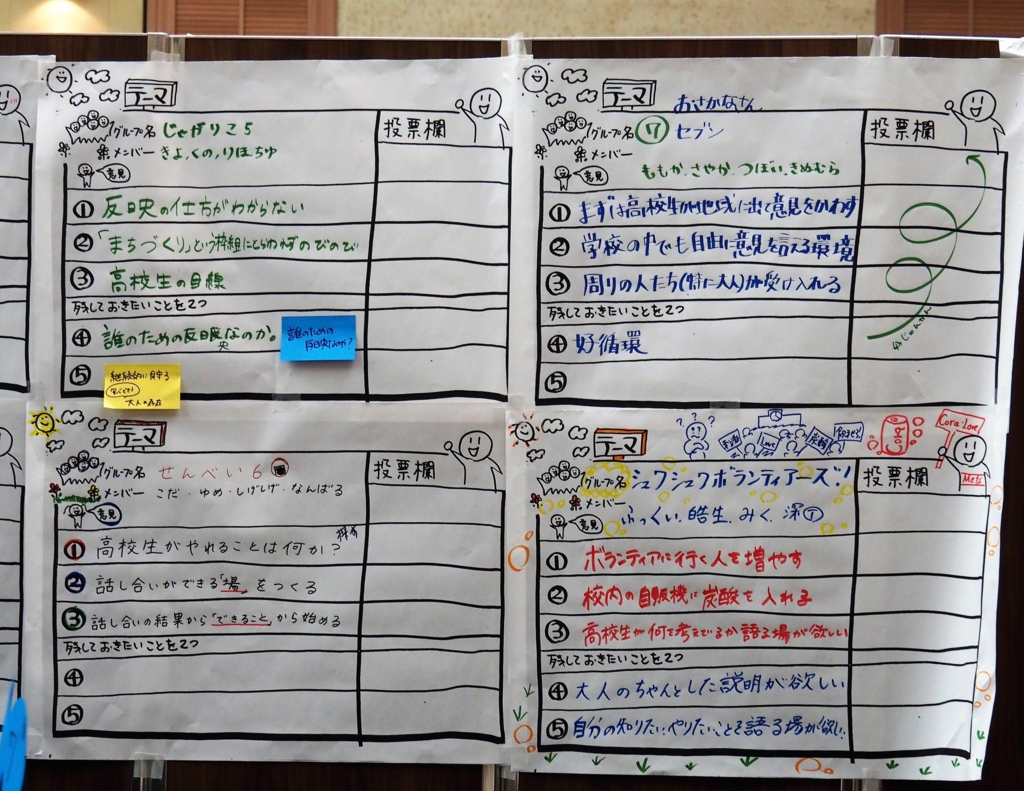 テーマ
グループ名 じゃがりこ5
投票欄
メンバー きよ、くの、りほちゆ
意見
① 反映の仕方がわからない
②「まちづくり」という枠組にとらわれずのびのび
③ 高校生の目線
残しておきたいことを2つ
④ 誰のための反映なのか。
映
誰のための
反映なのか?
⑤
継続的に見守る
大人の存在
テーマ
おさかなさん
グループ名 ⑦ セブン
投票欄
メンバー
ももか、さやか、つぼい、きめむら
意見
① まずは高校生が地域に出て意見をかわす
② 学校の中でも自由に意見を言える環境
③ 周りの人たち(特に大人)が受け入れる
残しておきたいことを2つ
④ 好循環
⑤
テーマ
グループ名 せんべい6
投票欄
メンバー こだ・ゆめ・しげしげ・なんばる
意見
① 高校生がやれることは何か?
② 話し合いができる「場」をつくる
③ 話し合いの結果から「できること」から始める
残しておきたいことを2つ
④
⑤
テーマ
Cora・Love
Love
グループ名 シュワシュワボランティアーズ!
投票欄
Mets
メンバー
ふっくい、皓生、みく、深
意見
① ボランティアに行く人を増やす
② 校内の自販機に炭酸を入れる
③ 高校生が何て考えてるか語る場が欲しい
残しておきたいことを2つ
④ 大人のちゃんとした説明が欲しい
⑤ 自分の知りたい、やりたいことを語る場が欲しい